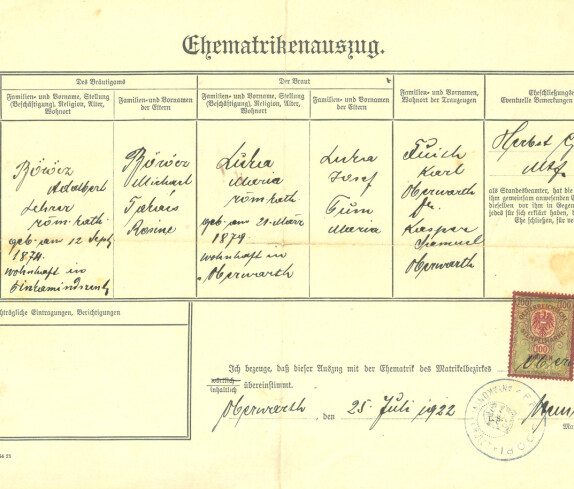 Ehematrikenauszug.
Des Bräutigams
Der Braut
Familien- und Vornamen,
Wohnort der Trauzeugen
Eheschließung
Eventuelle Bemerkungen
Familien- und Vorname, Stellung
(Beschäftigung), Religion, Alter,
Wohnort
Familien- und Vornamen
der Eltern
Familien- und Vorname, Stellung
(Beschäftigung), Religion, Alter,
Wohnort
Familien- und Vornamen
der Eltern
Böröcz
Adalbert
Lehrer
röm. kath.
geb. am 12 Sept.
1874.
wohnhaft in
Böröcz
Michael
Takács
Rosine
Luka
Maria
röm. kath.
geb. am 21. März
1879.
wohnhaft in
Oberwarth
Luka
Josef
Maria
Karl
Oberwarth
Kaspar
Samuel
Oberwarth
Herbst
als Standesbeamter, hat die
ihm gemeinsam anwesenden
dieselben vor ihm in Gegen
jedes für sich erklärt haben,
Ehe schließen, für
chträgliche Eintragungen, Berichtigungen
Ich bezeuge, daß dieser Auszug mit der Ehematrik des Matrikelbezirkes
wörtlich
inhaltlich übereinstimmt.
Oberwarth den 25. Juli 1922
100
100
L. S.